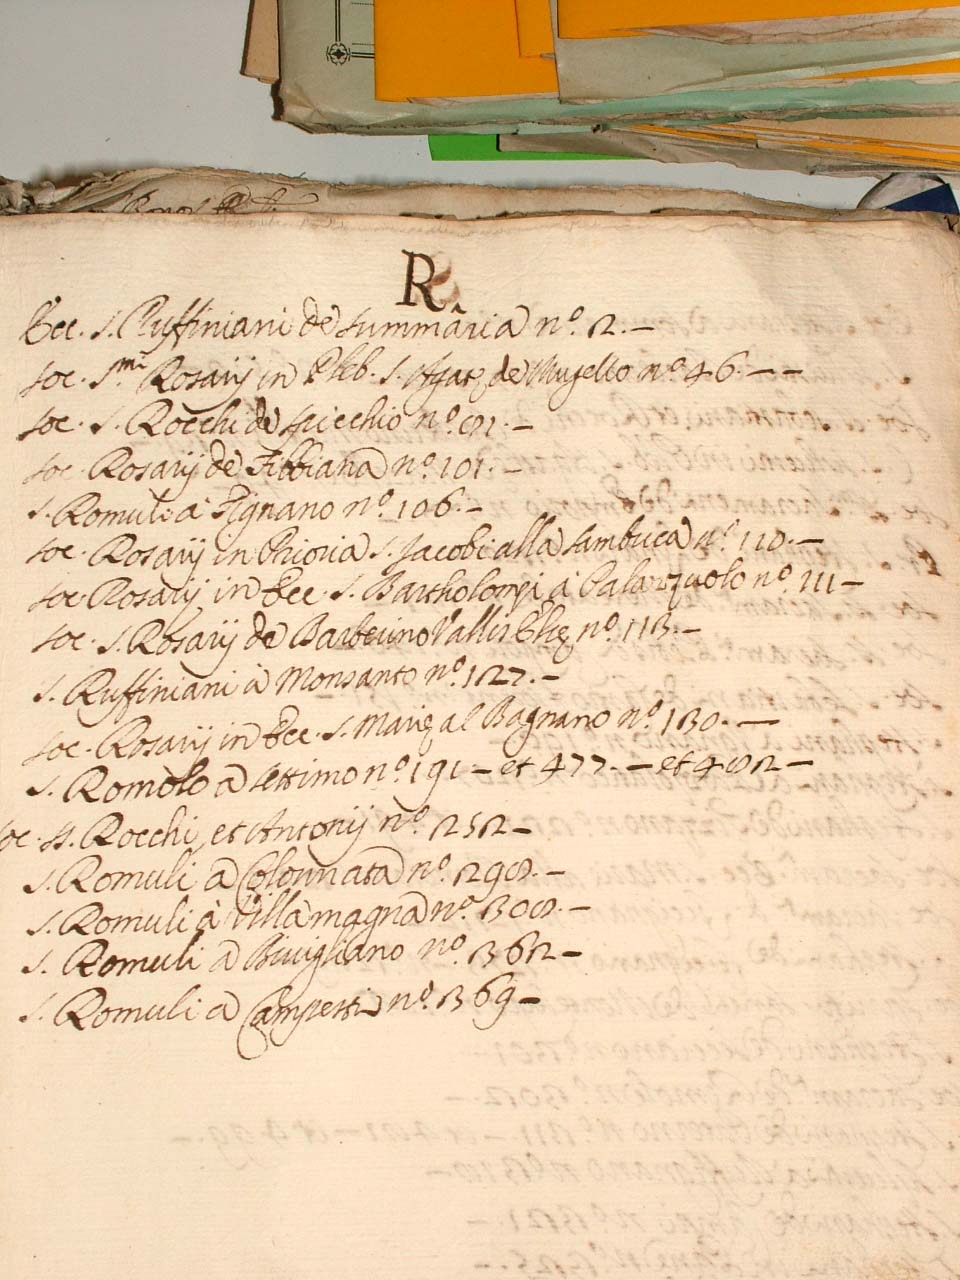 R
Ecc. S. Ruffiniani de Summaria n.º 2. –
Soc. S.mi Rosarij in Pleb. S. Agatę de Mugello n.º 46. – –
Soc. S. Rocchi de Spicchio n.º
Soc. Rosarij de Fibbiana n.º 101. –
S. Romuli à Tignano n.º 106. –
Soc. Rosarij in Prioria S. Jacobi alla Sambuca n.º 110. –
Soc. Rosarij in Ecc. S. Bartholomęi à Palazzuolo n.º 111 –
Soc. S. Rosarij de Barberino Vallis Elsę n.º 113. –
S. Ruffiniani à Monsanto n.º 127. –
Soc. Rosarij in Ecc. S. Marię al Bagnano n.º 130. –
S. Romolo à Settimo n.º 191 – et 477. – et 482 –
Soc. SS. Rocchi, et Antonij n.º 252 –
S. Romuli à Colonnata n.º 298. –
S. Romuli à Villamagna n.º 308. –
S. Romuli à Bivigliano n.º 362 –
S. Romuli à n.º 369 –